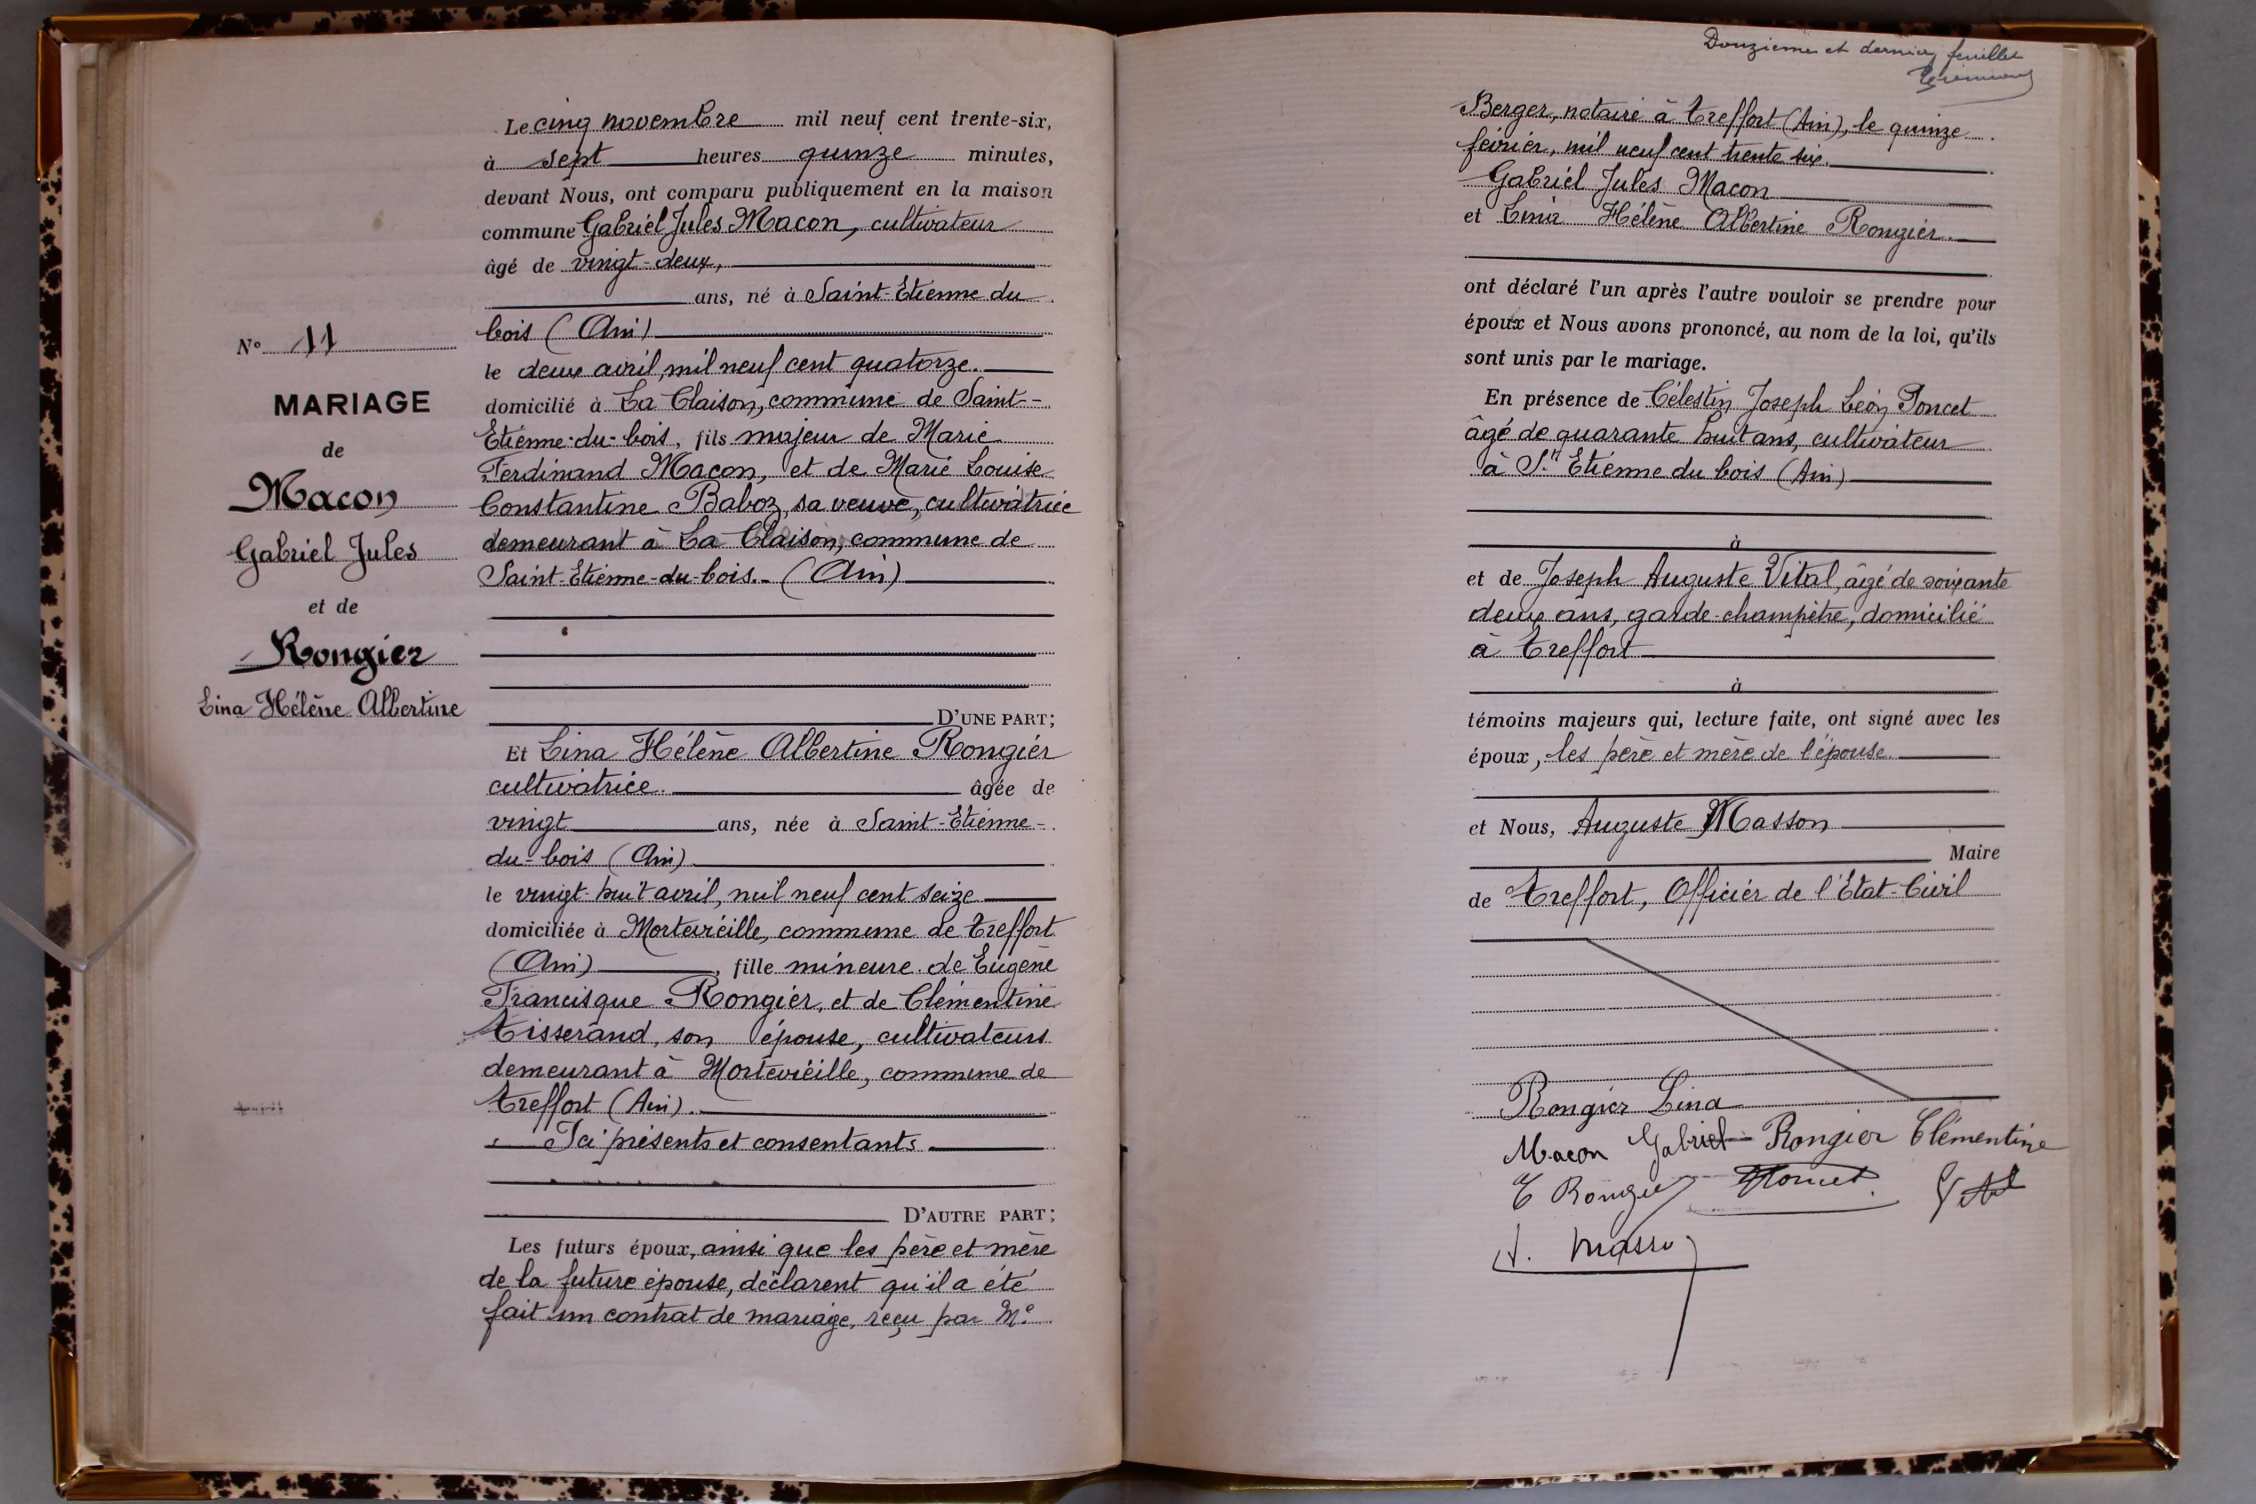 N° 11
MARIAGE
de
Macon
Gabriel Jules
et de
Rongier
Lina Hélène Albertine
Le cinq novembre mil neuf cent trente-six,
à sept heures quinze minutes,
devant Nous, ont comparu publiquement en la maison
commune Gabriel Jules Macon, cultivateur
âgé de vingt-deux,
ans, né à Saint-Etienne du
bois (Ain)
le deux avril, mil neuf cent quatorze.
domicilié à La Claison, commune de Saint-
Etienne-du-bois, fils majeur de Marie
Ferdinand Macon, et de Marie Louise
Constantine Baboz, sa veuve, cultivatrice
demeurant à La Claison, commune de
Saint-Etienne-du-bois. (Ain)
D'UNE PART;
Et Lina Hélène Albertine Rongier
cultivatrice. âgée de
vingt ans, née à Saint-Etienne-
du-bois (Ain)
le vingt-huit avril, mil neuf cent seize
domiciliée à Mortevieille, commune de Treffort
(Ain), fille mineure de Eugène
Francisque Rongier, et de Clémentine
Tisserand, son épouse, cultivateurs
demeurant à Mortevieille, commune de
Treffort (Ain).
Ici présents et consentants
D'AUTRE PART;
Les futurs époux, ainsi que les père et mère
de la future épouse, déclarent qu'il a été
fait un contrat de mariage, reçu par Me
Douzième et dernier feuillet
Berger, notaire à Treffort (Ain), le quinze
février, mil neuf cent trente six.
Gabriel Jules Macon
et Lina Hélène Albertine Rongier.
ont déclaré l'un après l'autre vouloir se prendre pour
époux et Nous avons prononcé, au nom de la loi, qu'ils
sont unis par le mariage.
En présence de Célestin Joseph Léon Poncet
âgé de quarante huit ans, cultivateur
à St Etienne du bois (Ain)
à
et de Joseph Auguste Vital, âgé de soixante
deux ans, garde-champêtre, domicilié
à Treffort
à
témoins majeurs qui, lecture faite, ont signé avec les
époux, les père et mère de l'épouse.
et Nous, Auguste Masson
Maire
de Treffort, Officier de l'Etat-Civil
Rongier Lina
Macon Gabriel Rongier Clémentine
E Rongier Poncet Vital
A. Masson